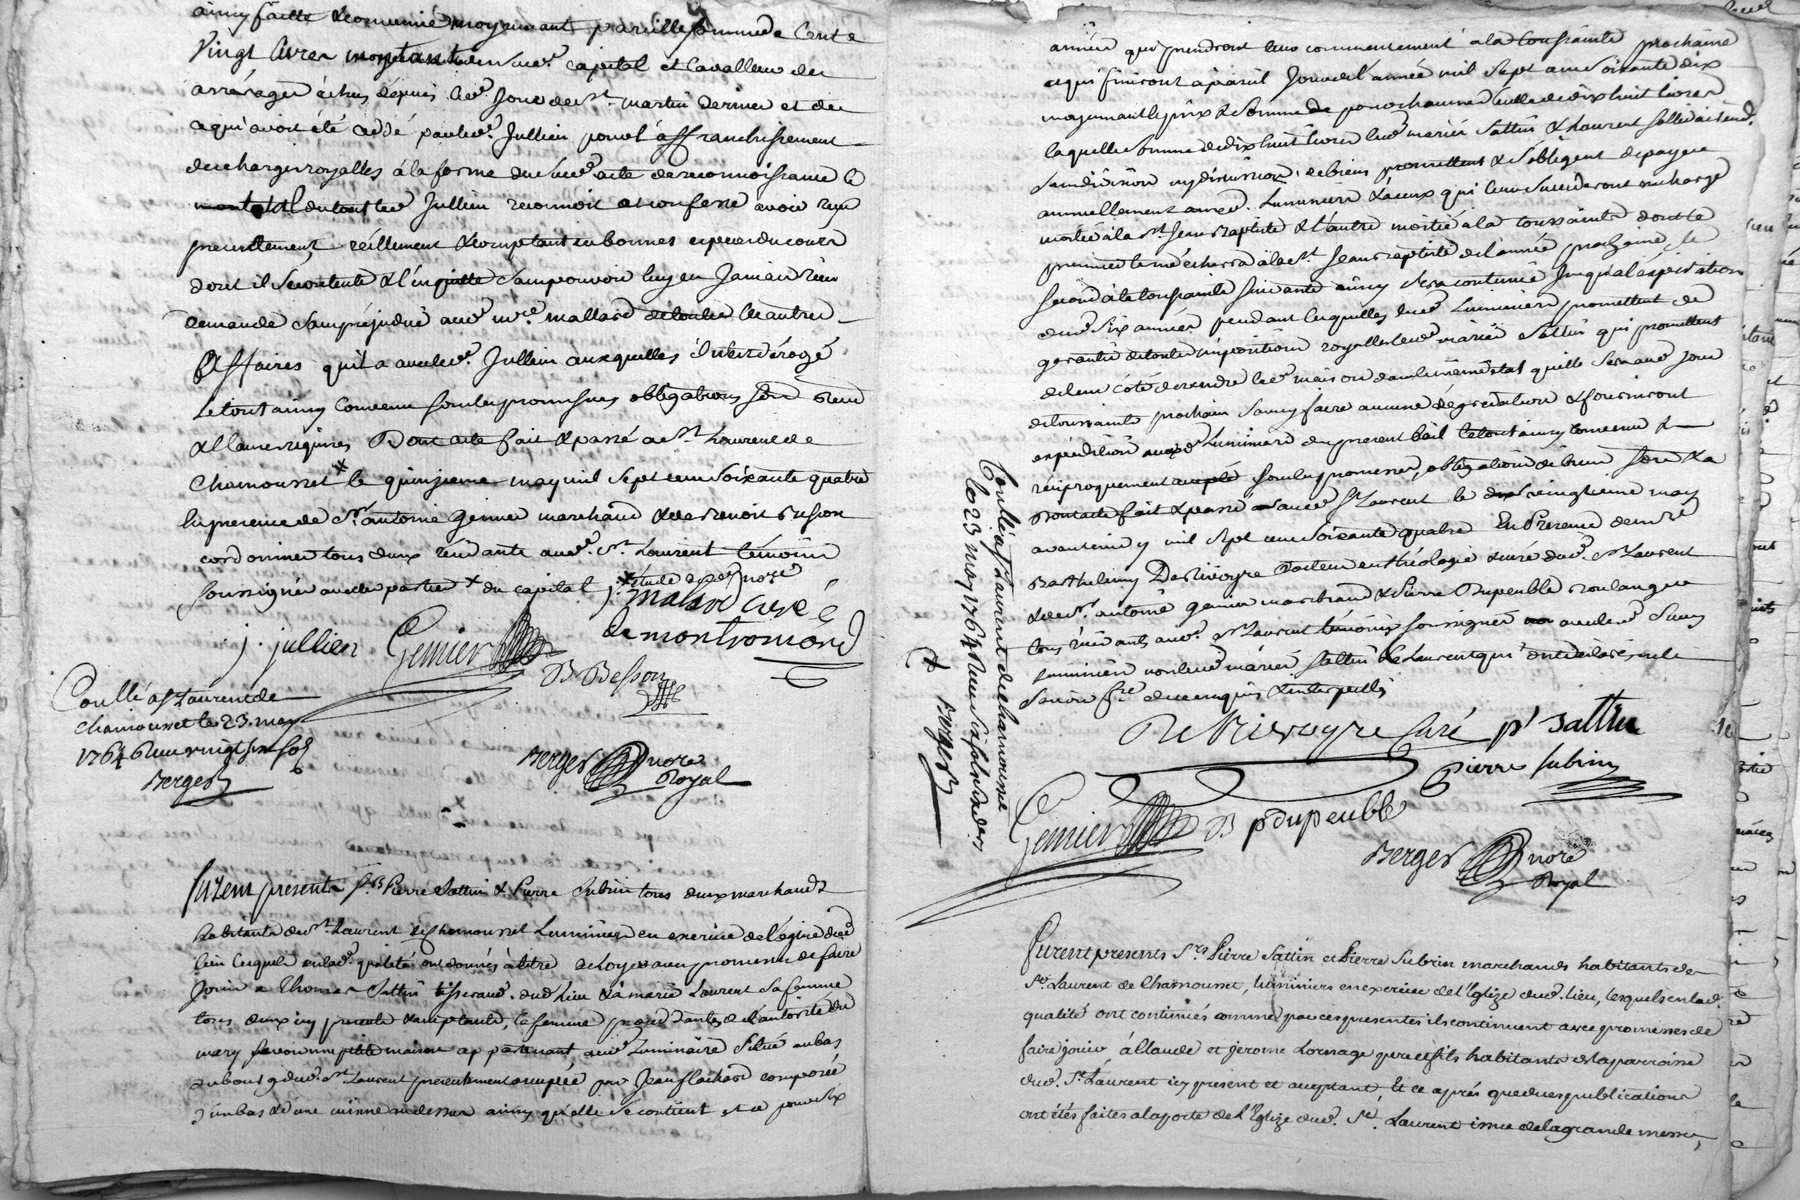 ainsy faitte & moyennant pareille somme de Cent
Vingt livres capital et Cavalleur des
arrérages échus depuis led. Jour de St. martin dernier et de
ce qui avoit été cédé par led. Jullien pour l'affranchissement
des charges royalles à la forme dud. acte de reconnoissance le
tout led. Jullien reconnoit et confesse avoir reçu
presentement, réellement & comptant en bonnes especes du cours
dont il se contente & l'en quitte sans pouvoir luy en Jamais rien
demander sans préjudice aud. mre. mallard de toutes les autres
Affaires qu'il a avec led. Jullien auxquelles il n'est dérogé
Le tout ainsy Convenu sous les promesses obligations
& Clauses requises Dont acte fait & passé a St. Laurent de
Chamousset le quinzieme may mil sept cent soixante quatre
En presence de Sr. antoine Genier marchand & de Benoit Besson
cordonnier tous deux residants aud. St. Laurent témoins
soussignés avec les parties × du capital
j. mallard curé
de montromand
j. jullien Genier
B Besson
Coullé a St Laurent de
Chamousset le 23. may
1764 Reçu vingt six sols
Berger
Berger nore
Royal
Furent presents Srs Pierre Sattin & Pierre Subrin tous deux marchands
habitants de St. Laurent de Chamousset Luminiers en exercice de l'église dud.
lieu lesquels en lad. qualité ont donnés à titre de Loyer avec promesse de faire
Jouir a Thomas Sattin tisserand dud. Lieu & à marie Laurent sa femme
tous deux icy presents & acceptants, la femme procedante de l'autorité du
mary savoir une petite maison appartenant aud. Luminaire située au bas
du bourg dud. St. Laurent presentement occupée par Jean flachard composée
d'un bas & d'une cuisine au dessus ainsy qu'elle se contient et ce pour six
années qui prendront leur commencement à la toussainte prochaine
et qui finiront à pareil Jour de l'année mil sept cent soixante dix
moyennant le prix & somme de pour chacune d'icelles de dix huit livres
laquelle somme de dix huit livres lesd. mariés Sattin & Laurent solidairement
sans division ny discution de biens promettent & s'obligent de payer
annuellement auxd. Luminiers & à ceux qui leur succederont en charge
moitié à la St. Jean Baptiste & l'autre moitié à la toussainte dont le
premier terme échera à la St. Jean baptiste de l'année prochaine, le
second à la toussainte suivante ainsy sera continué Jusqu'à l'expiration
desd. six années pendant lesquelles lesd. Luminiers promettent de
garantir de toutes impositions royalles lesd. mariés Sattin qui promettent
de leur côté de rendre lad. maison dans le même état qu'elle sera aud. Jour
de toussainte prochain sans y faire aucune dégradation & fourniront
expédition auxd. Luminiers du present bail le tout ainsy convenu &
réciproquement accepté sous les promesses, obligations de biens
Dont acte fait & passé aud. St. Laurent le vingtieme may
avant midy mil sept cent soixante quatre En Presence de mre
Barthelemy De Rivoyre docteur en théologie & curé dud. St. Laurent
& de Sr. antoine Genier marchand & Pierre Dupeuble boulanger
tous residants aud. St. Laurent témoins soussignés avec lesd. Srs
Luminiers non lesd. mariés Sattin & Laurent qui ont déclaré ne le
savoir fre. de ce enquis & interpellés
De Rivoyre Curé p. Sattin
Pierre Subrin
Genier
p dupeuble
Berger nore
Royal
Coullé a St Laurent de chamousset
le 23 may 1764 Reçu six sols
Berger
Furent presents Srs. Pierre Sattin et Pierre Subrin marchands habitants de
St. Laurent de Chamousset, luminiers en exercice de l'Eglize dud. lieu, lesquels en lad.
qualité ont continués comme par ces presentes ils continuent avec promesses de
faire jouir à Claude et jerome Lornage pere et fils habitants de la parroisse
dud. St. Laurent icy present et acceptant, Et ce aprés que dues publications
ont étés faites a la porte de l'Eglize dud. St. Laurent issue de la grande messe,